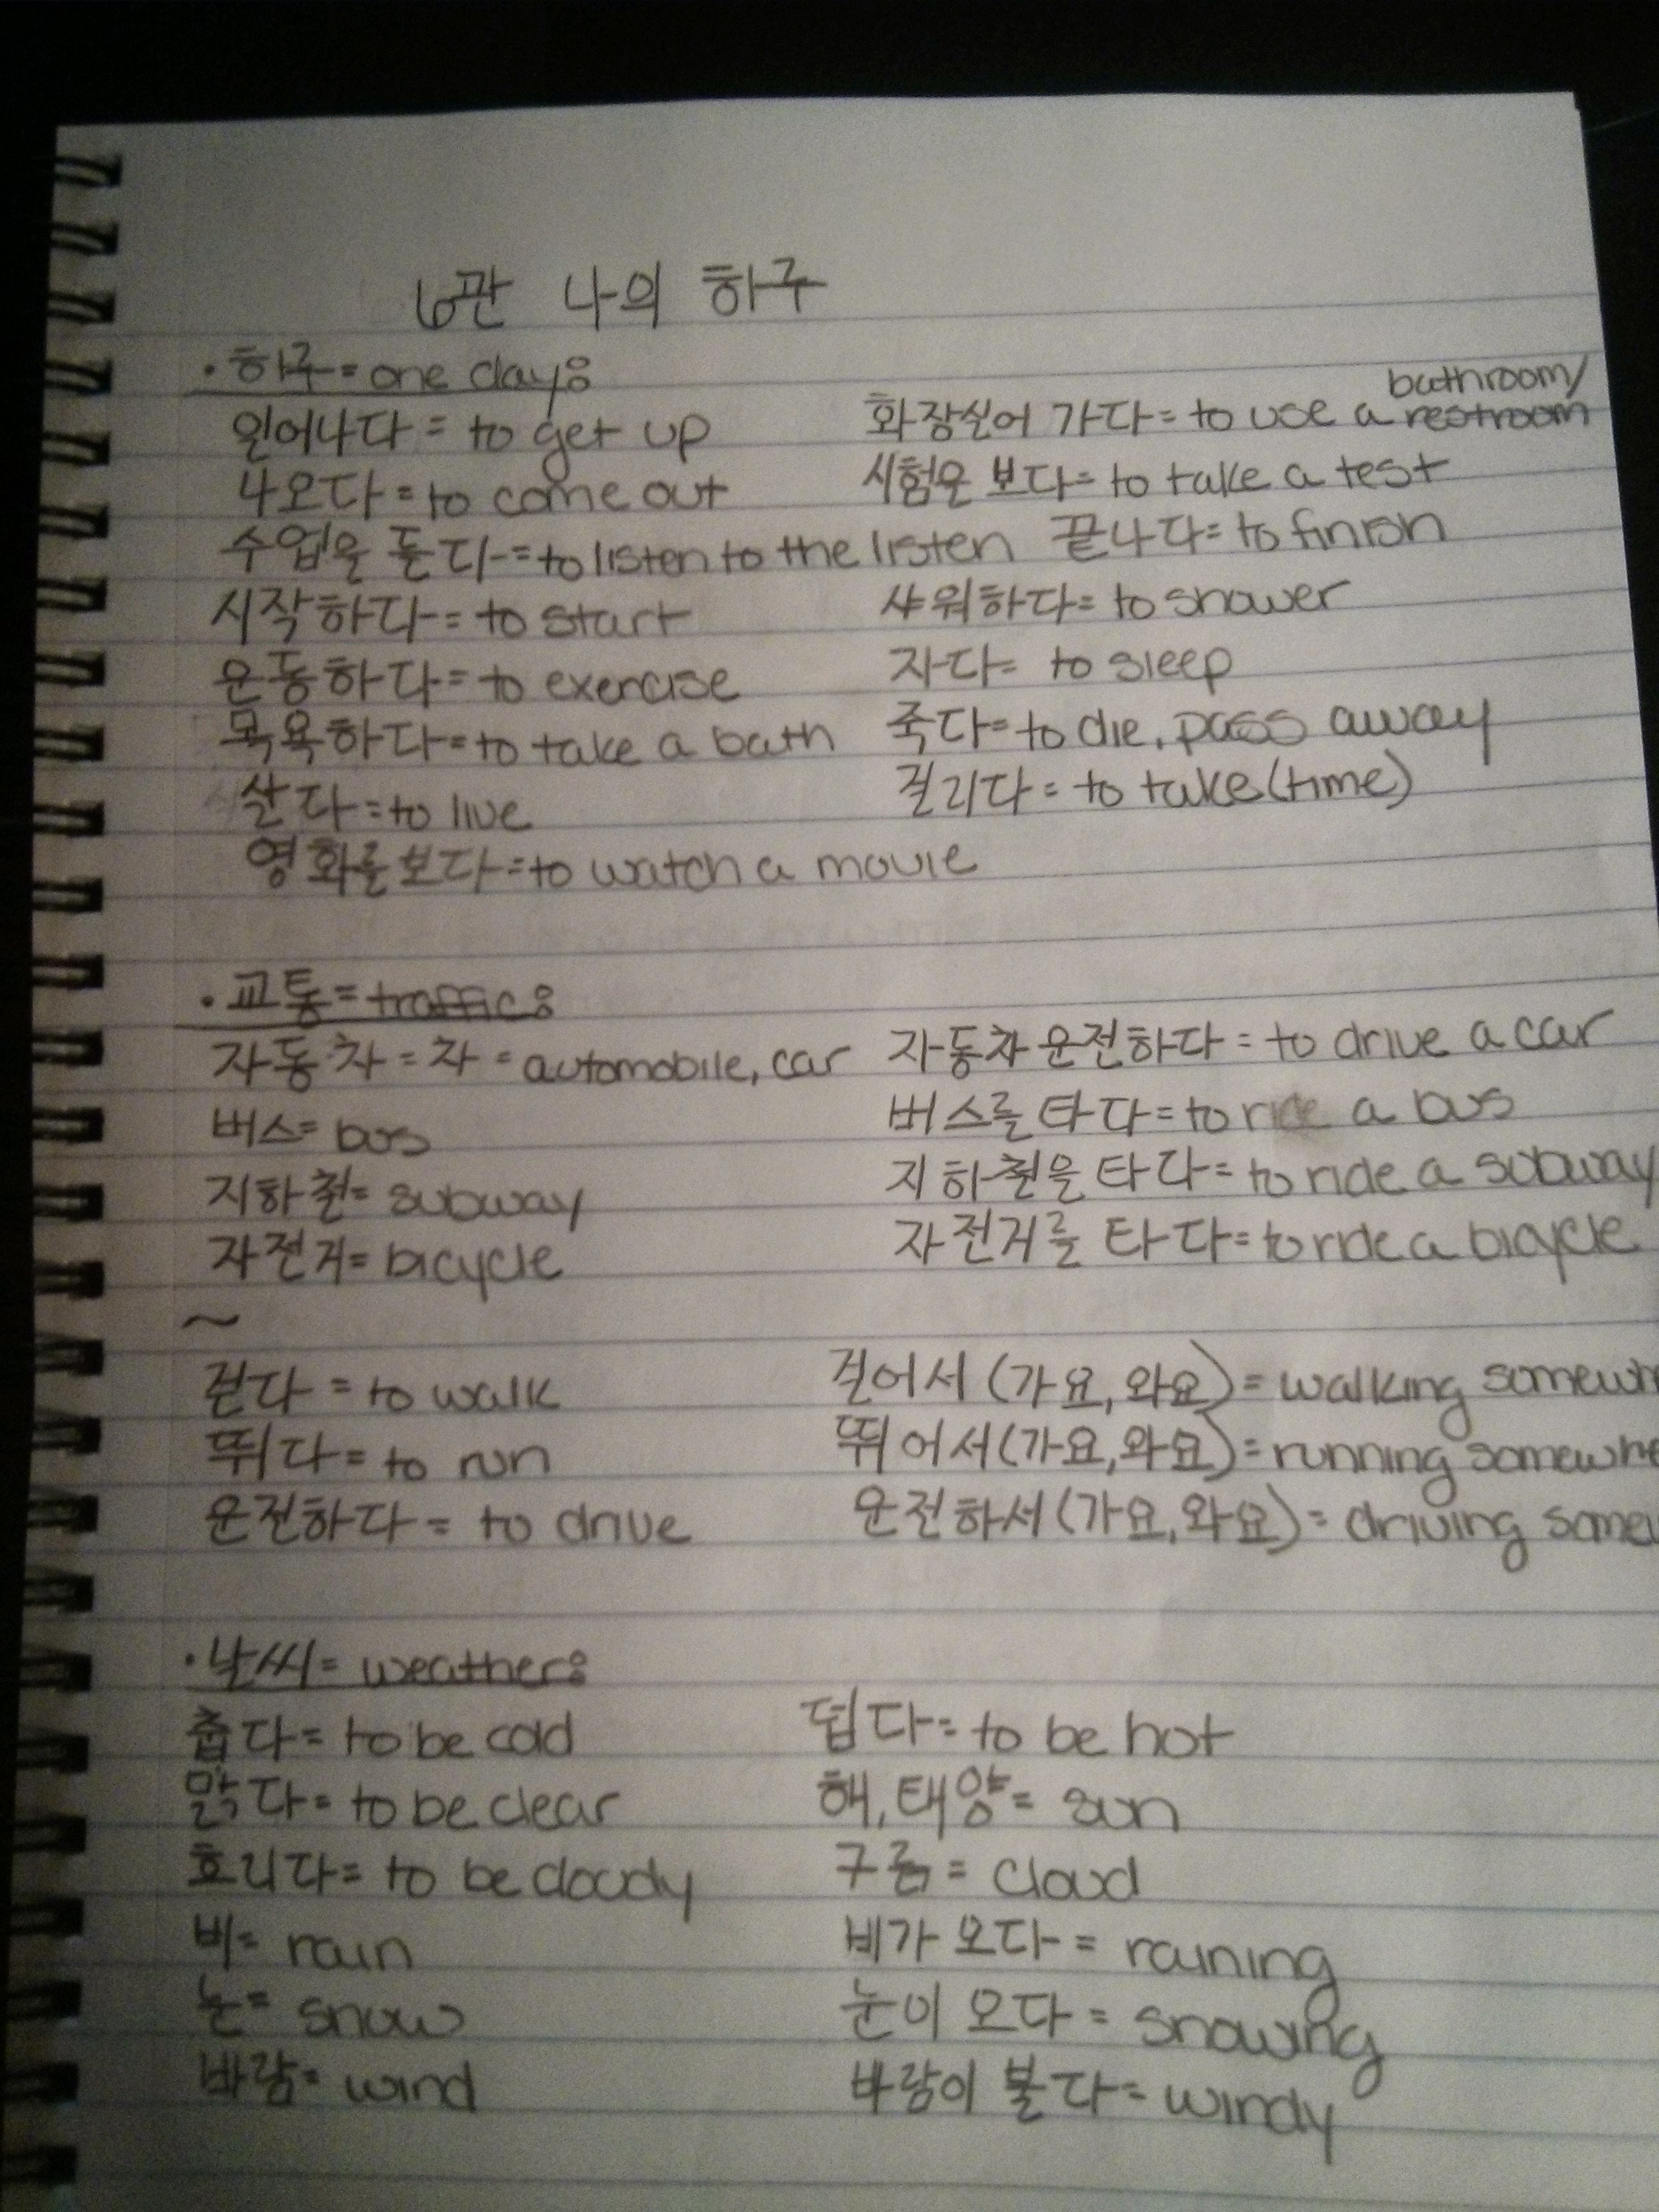 6관 나의 하구
· 하구 = one day:
bathroom/
일어나다 = to get up 화장실어 가다 = to use a restroom
나오다 = to come out 시험을 보다 = to take a test
수업을 듣다 = to listen to the listen 끝나다 = to finish
시작하다 = to start 샤워하다 = to shower
운동하다 = to exercise 자다 = to sleep
목욕하다 = to take a bath 죽다 = to die, pass away
살다 = to live 걸리다 = to take (time)
영화를 보다 = to watch a movie
· 교통 = traffic:
자동차 = 차 = automobile, car 자동차 운전하다 = to drive a car
버스 = bus 버스를 타다 = to ride a bus
지하철 = subway 지하철을 타다 = to ride a subway
자전거 = bicycle 자전거를 타다 = to ride a bicycle
~
걷다 = to walk 걸어서 (가요, 와요) = walking somewh
뛰다 = to run 뛰어서 (가요, 와요) = running somewhe
운전하다 = to drive 운전하서 (가요, 와요) = driving somew
· 날씨 = weather:
춥다 = to be cold 덥다 = to be hot
맑다 = to be clear 해, 태양 = sun
흐리다 = to be cloudy 구름 = cloud
비 = rain 비가 오다 = raining
눈 = snow 눈이 오다 = snowing
바람 = wind 바람이 불다 = windy